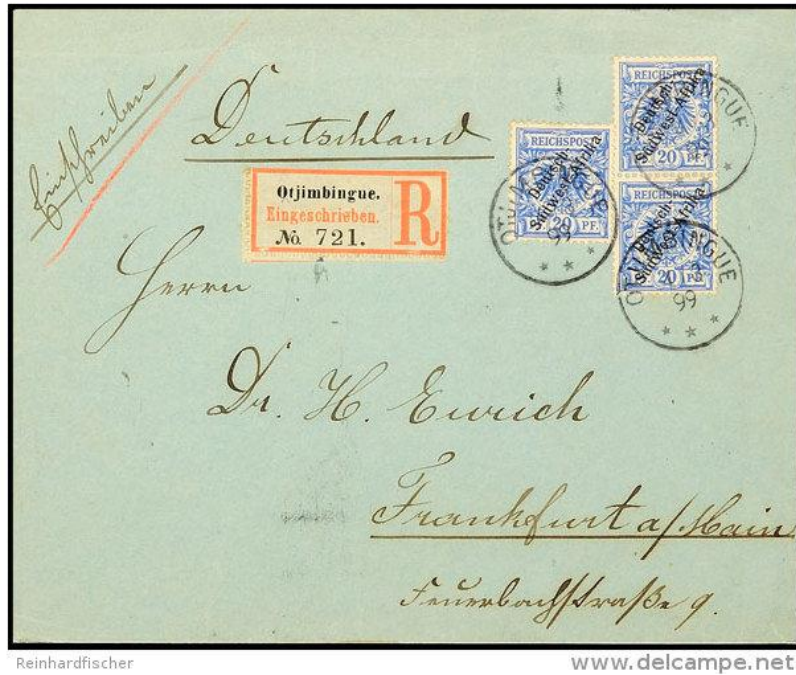 Einschreiben
Deutschland
Otjimbingue.
Eingeschrieben.
No. 721.
R
REICHSPOST
Deutsch-
Südwest-Afrika
PF.
REICHSPOST
Deutsch-
Südwest-Afrika
20 PF.
REICHSPOST
Deutsch-
Südwest-Afrika
20 PF.
OTJIMBINGUE
99
OTJIMBINGUE
OTJIMBINGUE
99
Herrn
Dr. H. Eurich
Frankfurt a/Main
Feuerbachstraße 9.
Reinhardfischer
www.delcampe.net